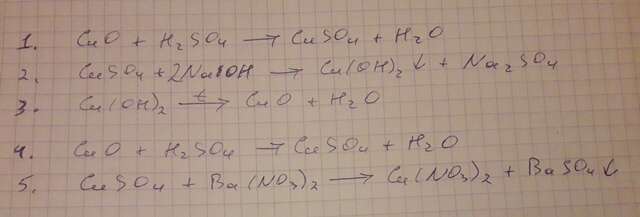 1. CuO + H₂SO₄ → CuSO₄ + H₂O
2. CuSO₄ + 2NaOH → Cu(OH)₂↓ + Na₂SO₄
3. Cu(OH)₂ →ᵗ CuO + H₂O
4. CuO + H₂SO₄ → CuSO₄ + H₂O
5. CuSO₄ + Ba(NO₃)₂ → Cu(NO₃)₂ + BaSO₄↓